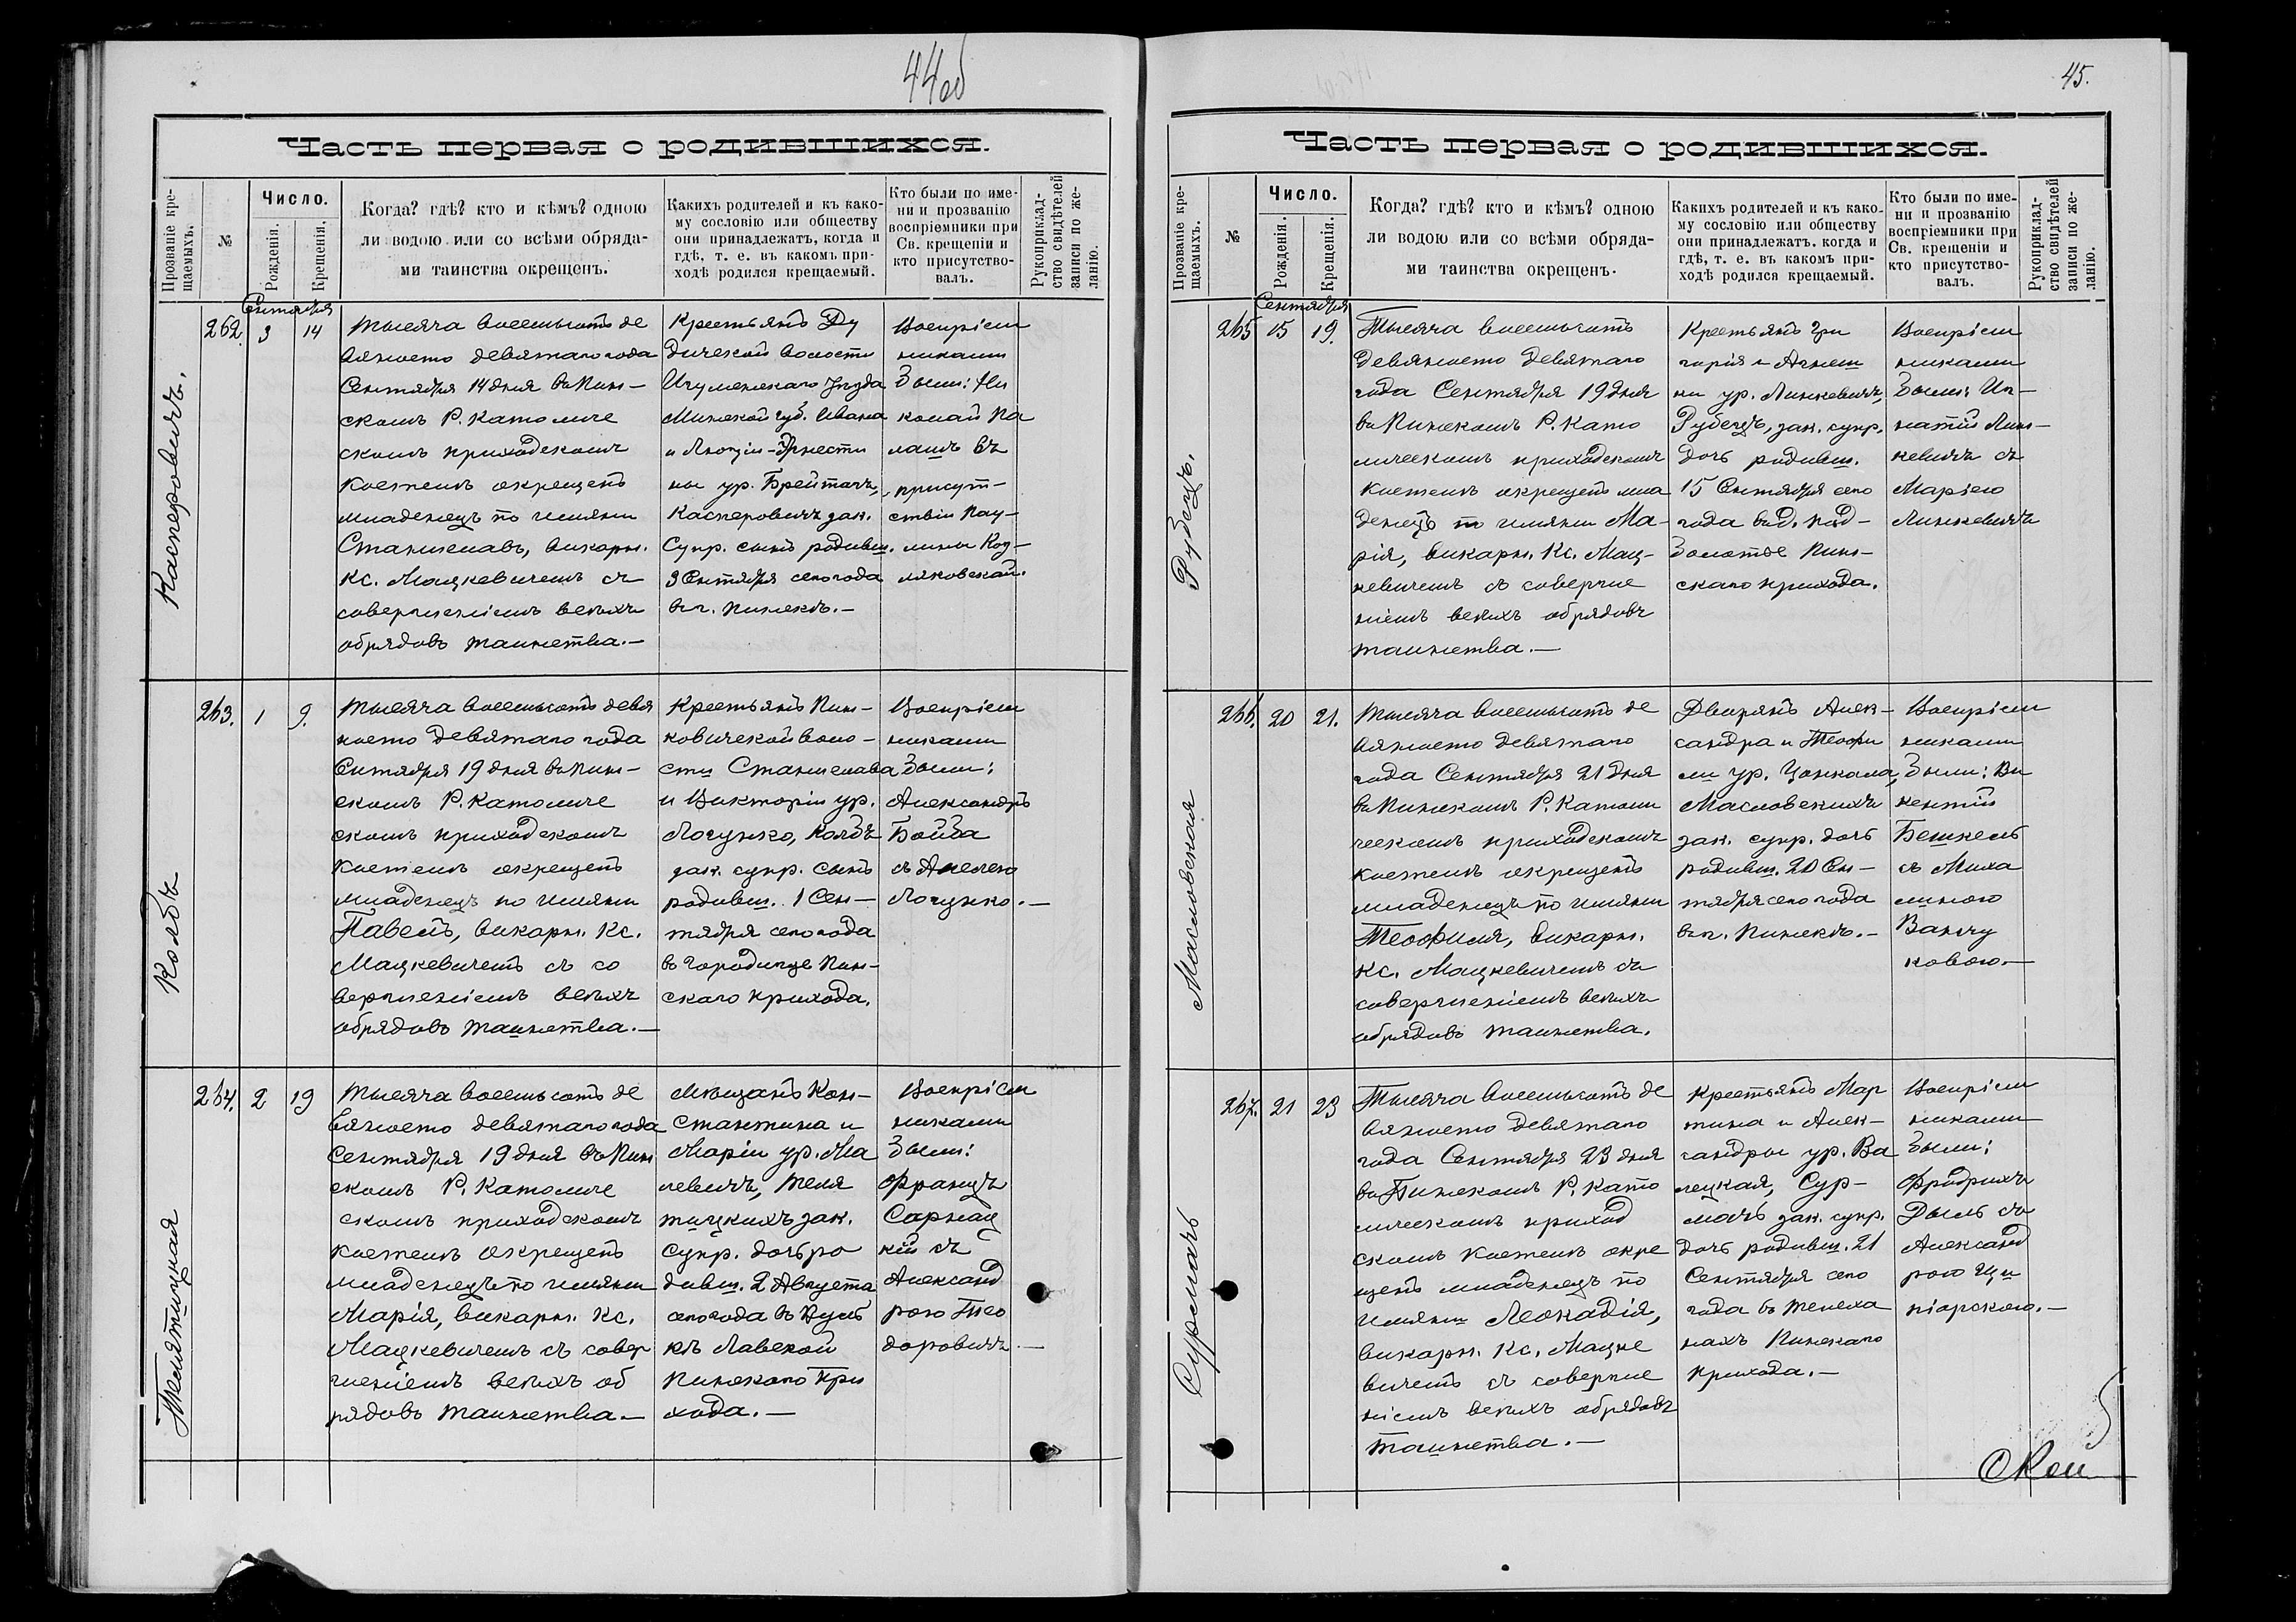 44об
Часть первая о родившихся.
Прозваніе кре-
щаемыхъ.
№
Число.
Рожденія.
Крещенія.
Когда? гдѣ? кто и кѣмъ? одною
ли водою или со всѣми обряда-
ми таинства окрещенъ.
Какихъ родителей и къ како-
му сословію или обществу
они принадлежатъ, когда и
гдѣ, т. е. въ какомъ при-
ходѣ родился крещаемый.
Кто были по име-
ни и прозванію
воспріемники при
Св. крещеніи и
кто присутство-
валъ.
Рукоприклад-
ство свидѣтелей
записи по же-
ланію.
Сентября
Касперовичъ.
262. 3 14
Тысяча восемьсотъ де
вяносто девятаго года
Сентября 14 дня въ Пин-
скомъ Р. Католиче
скомъ приходскомъ
костелѣ окрещенъ
младенецъ по имяни
Станиславъ, викарн.
Кс. Мацкевичемъ съ
совершеніемъ всѣхъ
обрядовъ таинства.—
Крестьянъ Ду
дичской волости
Игуменскаго уѣзда
Минской губ. Ивана
и Люціи-Эрнести
ны ур. Брейтачъ,
Касперовичъ зак.
Супр. сынъ родивш.
3 Сентября сего года
въ г. Пинскѣ.—
Воспріем
никами
были: Ни
колай Па
лашъ въ
присут-
ствіи Пау-
лины Коз-
ляковской.
Колбъ
263. 1 9.
Тысяча восемьсотъ девя
носто девятаго года
Сентября 19 дня въ Пин-
скомъ Р. Католиче
скомъ приходскомъ
костелѣ окрещенъ
младенецъ по имяни
Павелъ, викарн. Кс.
Мацкевичемъ съ со
вершеніемъ всѣхъ
обрядовъ таинства.—
Крестьянъ Пин-
ковичской воло-
сти Станислава
и Викторіи ур.
Логунко, Колбъ
зак. супр. сынъ
родивш. 1 Сен-
тября сего года
въ Городищѣ Пин-
скаго прихода.
Воспріем
никами
были:
Александръ
Бойба
съ Анелею
Логунко.—
Телятицкая
264. 2 19
Тысяча восемьсотъ де
вяносто девятаго года
Сентября 19 дня въ Пин
скомъ Р. Католиче
скомъ приходскомъ
костелѣ окрещенъ
младенецъ по имяни
Марія, викарн. Кс.
Мацкевичемъ съ совер
шеніемъ всѣхъ об
рядовъ таинства.—
Мѣщанъ Кон-
стантина и
Маріи ур. Ма
левичъ, Теля
тицкихъ зак.
Супр. дочь ро
дивш. 2 Августа
сего года въ
Лавской
Пинскаго при
хода.—
Воспріем
никами
были:
Францъ
Сарнац
кій съ
Александ
рою Тео
доровичъ.—
45.
Часть первая о родившихся.
Прозваніе кре-
щаемыхъ.
№
Число.
Рожденія.
Крещенія.
Когда? гдѣ? кто и кѣмъ? одною
ли водою или со всѣми обряда-
ми таинства окрещенъ.
Какихъ родителей и къ како-
му сословію или обществу
они принадлежатъ. когда и
гдѣ, т. е. въ какомъ при-
ходѣ родился крещаемый.
Кто были по име-
ни и прозванію
воспріемники при
Св. крещеніи и
кто присутство-
валъ.
Рукоприклад-
ство свидѣтелей
записи по же-
ланію.
Сентября
Рубецъ.
265 15 19.
Тысяча восемьсотъ
девяносто девятаго
года Сентября 19 дня
въ Пинскомъ Р. Като
лическомъ приходскомъ
костелѣ окрещенъ мла
денецъ по имяни Ма-
рія, викарн. Кс. Мац-
кевичемъ съ соверше
ніемъ всѣхъ обрядовъ
таинства.—
Крестьянъ Гри
горія и Агнеш
ки ур. Линкевичъ,
Рубецъ, зак. супр.
дочь родивш.
15 Сентября сего
года въ д. Под-
болотье Пин-
скаго прихода.
Воспріем
никами
были: Иг-
натій Лин-
кевичъ съ
Маріею
Линкевичъ
Масловская
266. 20 21.
Тысяча восемьсотъ де
вяносто девятаго
года Сентября 21 дня
въ Пинскомъ Р. Катали
ческомъ приходскомъ
костелѣ окрещенъ
младенецъ по имяни
Теофиля, викарн.
Кс. Мацкевичемъ съ
совершеніемъ всѣхъ
обрядовъ таинства.
Дворянъ Алек-
сандра и Теофи
ли ур. Цонкала,
Масловскихъ
зак. супр. дочь
родивш. 20 Сен-
тября сего года
въ г. Пинскѣ.—
Воспріем
никами
были: Ви
кентій
Бешкель
съ Миха
линою
Ванчу
ковою.—
Сурмачъ
267. 21 23
Тысяча восемьсотъ де
вяносто девятаго
года Сентября 23 дня
въ Пинскомъ Р. Като
лическомъ приход
скомъ костелѣ окре
щенъ младенецъ по
имяни Леокадія,
викарн. Кс. Мацке
вичемъ съ соверше
ніемъ всѣхъ обрядовъ
таинства.—
Крестьянъ Мар
тина и Алек-
сандры ур. Ва
лецкая, Сур-
мачъ зак. супр.
дочь родивш. 21
Сентября сего
года въ Телеха
нахъ Пинскаго
прихода.—
Воспріем
никами
были:
Фридрихъ
Дыль съ
Александ
рою Щи
піорскою.—